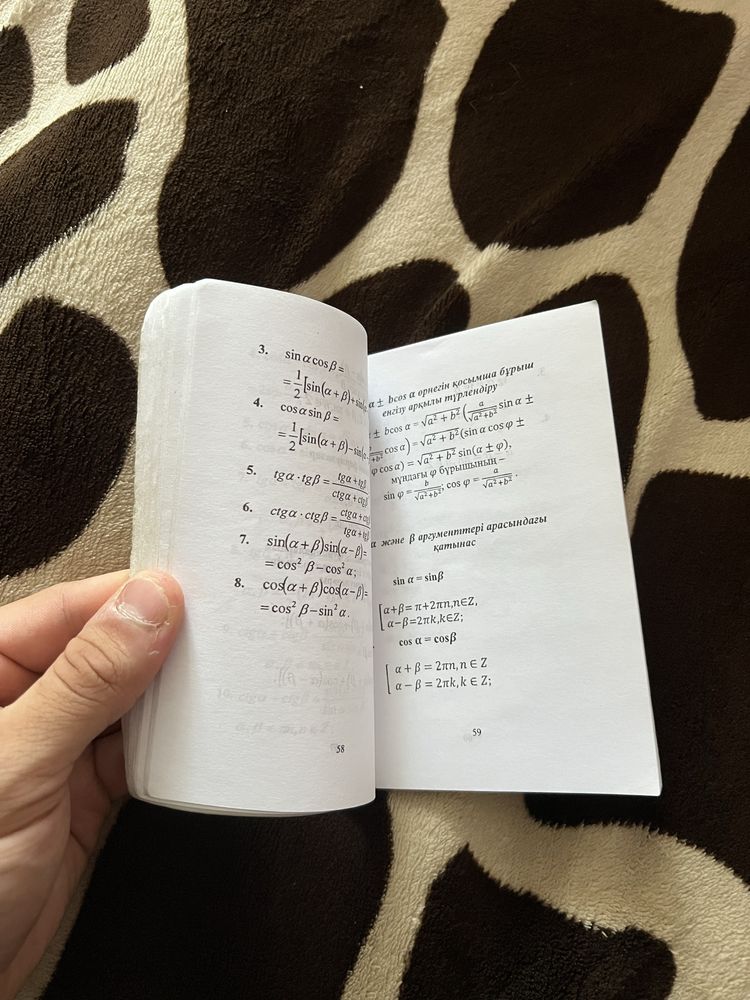 3. sin α cos β =
= 1/2 [sin(α + β) + sin(
4. cos α sin β =
= 1/2 [sin(α + β) − sin(
5. tg α · tg β = (tg α + tg β)/(ctg α + ctg β)
6. ctg α · ctg β = (ctg α + ctg β)/(tg α + tg β)
7. sin(α + β)sin(α − β) =
= cos² β − cos² α;
8. cos(α + β)cos(α − β) =
= cos² β − sin² α.
58
α ± bcos α өрнегін қосымша бұрыш
енгізу арқылы түрлендіру
± bcos α = √(a² + b²) (a/√(a²+b²) sin α ±
cos α) = √(a² + b²)(sin α cos φ ±
φ cos α) = √(a² + b²) sin(α ± φ),
мұндағы φ бұрышының −
sin φ = b/√(a²+b²); cos φ = a/√(a²+b²).
α және β аргументтері арасындағы
қатынас
sin α = sinβ
[α+β= π+2πn,n∈Z,
α−β=2πk,k∈Z;
cos α = cosβ
[α + β = 2πn, n ∈ Z
α − β = 2πk, k ∈ Z;
59